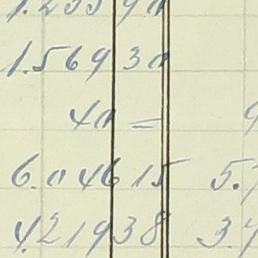 1.569 30
40 =
6.046 15 5.
4.219 38 3.